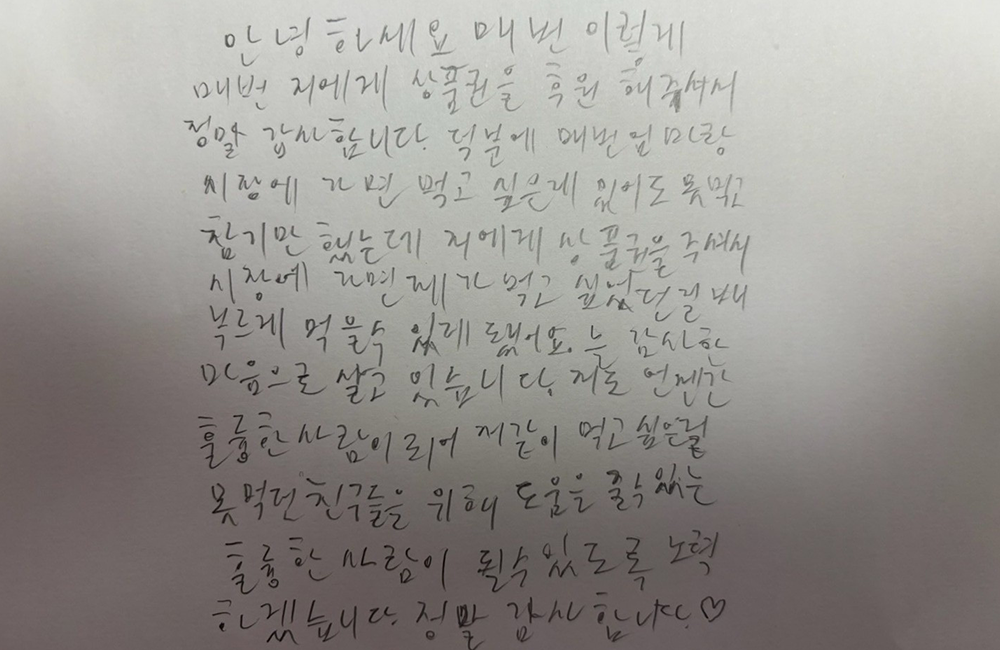 안녕하세요 매번 이렇게
매번 저에게 상품권을 후원 해주셔서
정말 감사합니다. 덕분에 매번 엄마랑
시장에 가면 먹고 싶은게 있어도 못먹고
참기만 했는데 저에게 상품권을 주셔서
시장에 가면 제가 먹고 싶었던걸 배
부르게 먹을수 있게 됐어요. 늘 감사한
마음으로 살고 있습니다. 저도 언젠간
훌륭한 사람이 되어 저같이 먹고싶은걸
못 먹던 친구들을 위해 도움을 줄수 있는
훌륭한 사람이 될수 있도록 노력
하겠습니다. 정말 감사합니다.♡